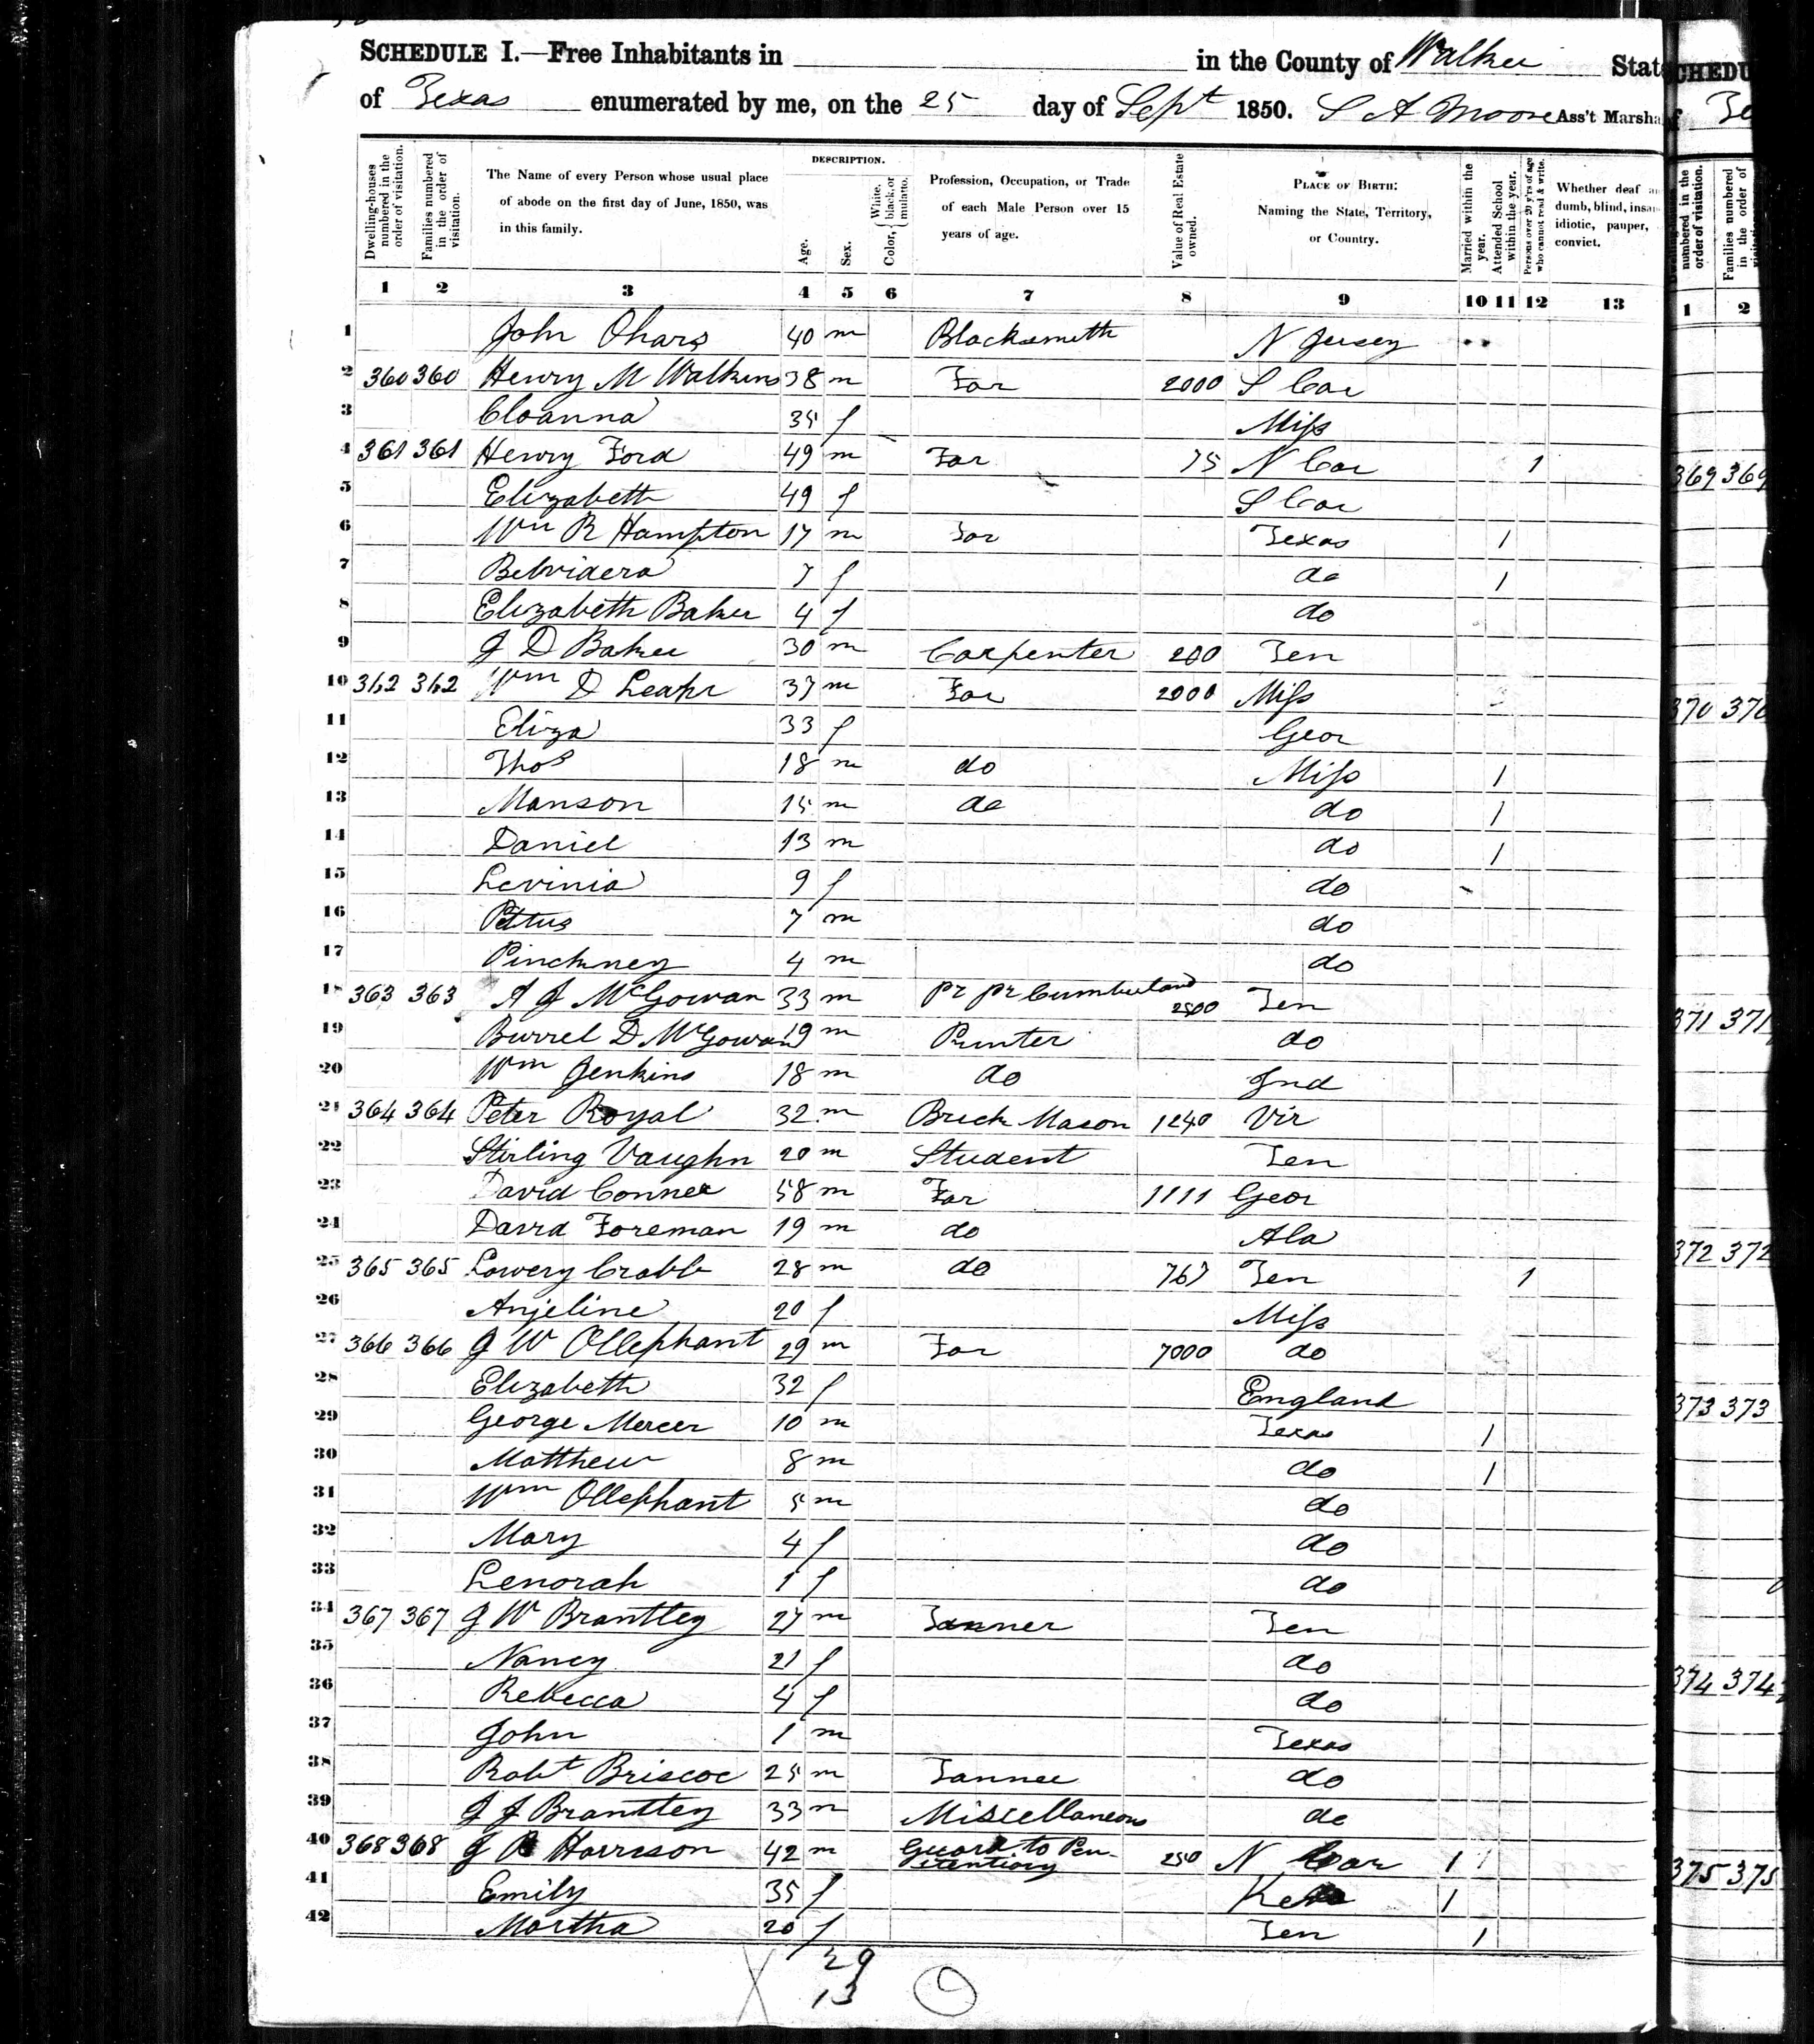 SCHEDULE I.—Free Inhabitants in in the County of Walker State
of Texas enumerated by me, on the 25 day of Sept 1850. S A Moore Ass't Marshal
Dwelling-houses numbered in the order of visitation.
Families numbered in the order of visitation.
The Name of every Person whose usual place of abode on the first day of June, 1850, was in this family.
DESCRIPTION.
Age.
Sex.
Color, { White, black, or mulatto.
Profession, Occupation, or Trade of each Male Person over 15 years of age.
Value of Real Estate owned.
PLACE OF BIRTH: Naming the State, Territory, or Country.
Married within the year.
Attended School within the year.
Persons over 20 y'rs of age who cannot read & write.
Whether deaf and dumb, blind, insane, idiotic, pauper, convict.
1 2 3 4 5 6 7 8 9 10 11 12 13
1 John Ohara 40 m Blacksmith N Jersey
2 360 360 Henry M Watkins 38 m Far 2000 S Car
3 Cloanna 35 f Miss
4 361 361 Henry Ford 49 m Far 75 N Car 1
5 Elizabeth 49 f S Car
6 Wm R Hampton 17 m Far Texas 1
7 Belvidera 7 f do 1
8 Elizabeth Baker 4 f do
9 J D Baker 30 m Carpenter 200 Ten
10 362 362 Wm D Leahr 37 m Far 2000 Miss
11 Eliza 33 f Geor
12 Thos 18 m do Miss 1
13 Manson 15 m do do 1
14 Daniel 13 m do 1
15 Levinia 9 f do
16 Pettus 7 m do
17 Pinckney 4 m do
18 363 363 A J McGowan 33 m Pr Pr Cumberland 2500 Ten
19 Burrel D McGowan 19 m Printer do
20 Wm Jenkins 18 m do Ind
21 364 364 Peter Royal 32 m Brick Mason 1240 Vir
22 Stirling Vaughn 20 m Student Ten
23 David Conner 58 m Far 1111 Geor
24 David Foreman 19 m do Ala
25 365 365 Lowery Crabb 28 m do 767 Ten 1
26 Anjeline 20 f Miss
27 366 366 J W Ollephant 29 m Far 7000 do
28 Elizabeth 32 f England
29 George Mercer 10 m Texas 1
30 Matthew 8 m do 1
31 Wm Ollephant 5 m do
32 Mary 4 f do
33 Lenorah 1 f do
34 367 367 J W Brantley 27 m Tanner Ten
35 Nancy 21 f do
36 Rebecca 4 f do
37 John 1 m Texas
38 Robt Briscoe 25 m Tanner do
39 J J Brantley 33 m Miscellaneous do
40 368 368 J R Harrison 42 m Guard to Penitentiary 250 N Car 1 1
41 Emily 35 f 1
42 Martha 20 f Ten 1
29
13
SCHEDU
1 2
369 369
370 370
371 371
372 372
373 373
374 374
375 375